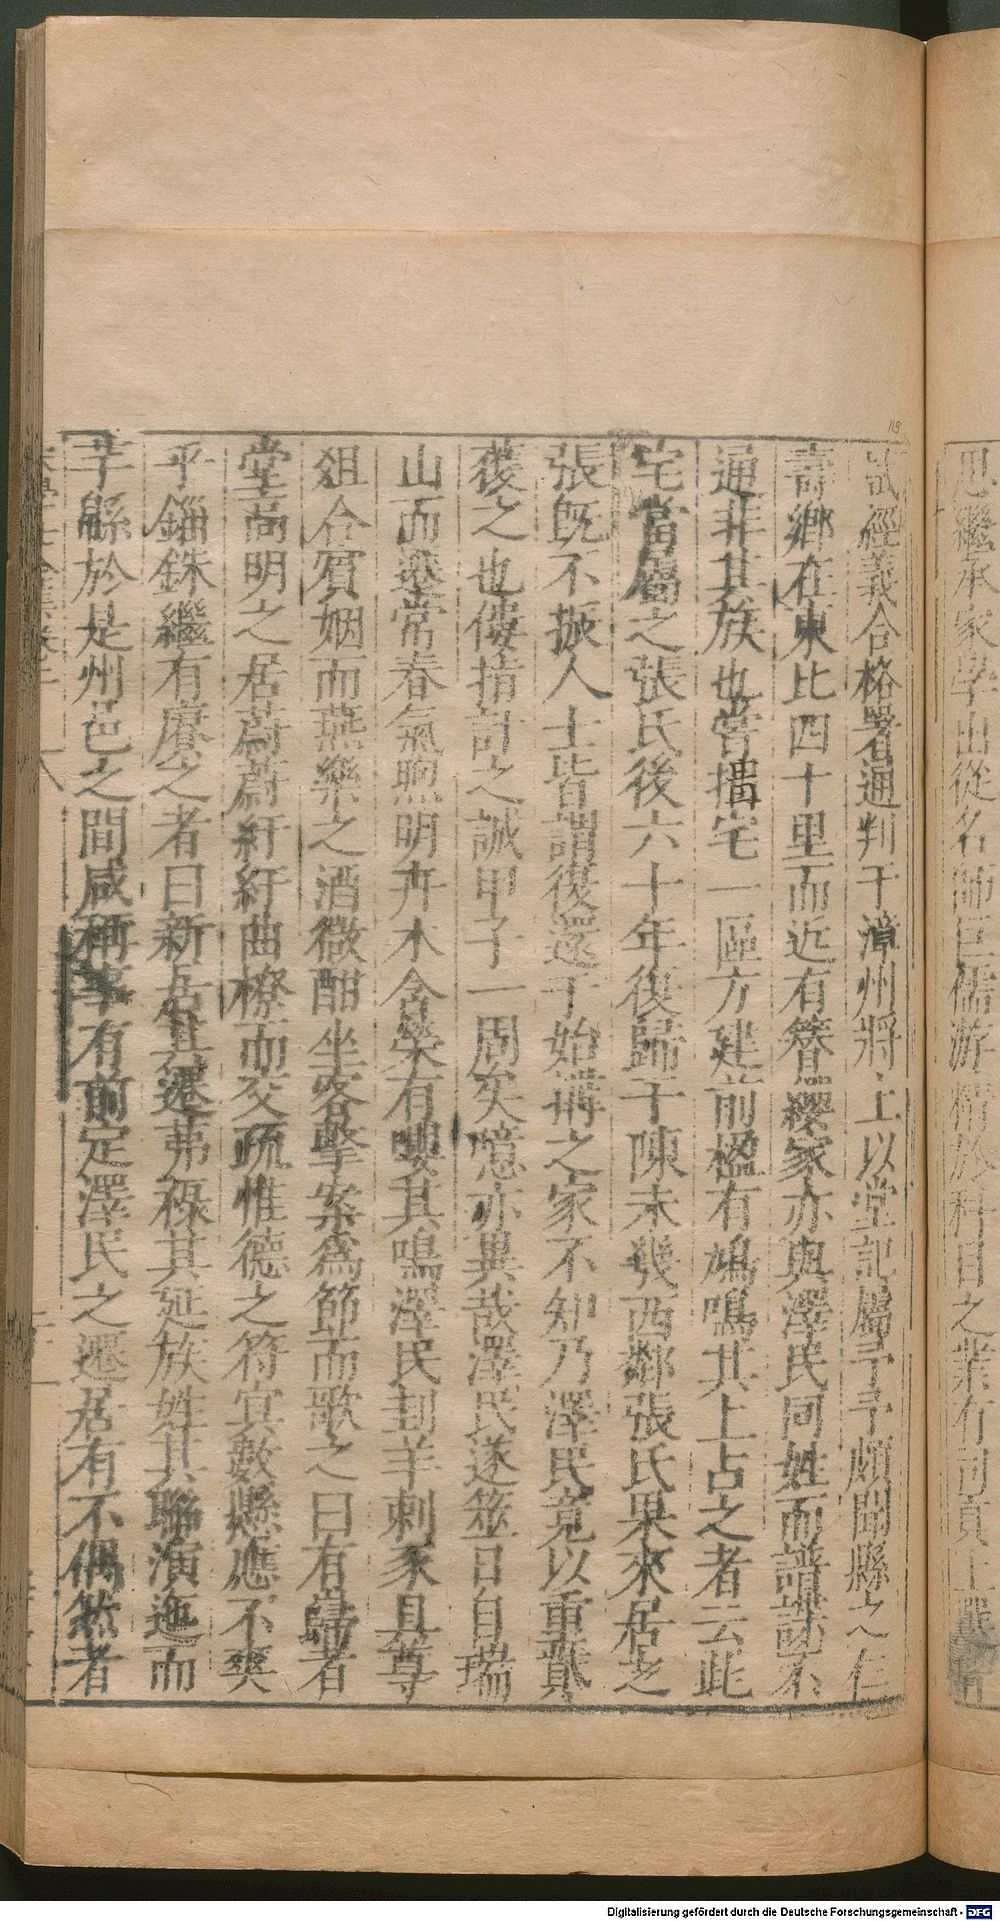 思繼承家學出從名師巨儒游精於科目之業有司貢上選
試經義合格署通判于漳州將上以堂記屬予予頗聞縣之仁
壽鄉在東比四十里而近有簪纓家亦與澤民同姓而譜諜不
通非其族也嘗搆宅一區方建前楹有鳩鳴其上占之者云此
宅當屬之張氏後六十年復歸于陳未幾西鄰張氏果來居之
張旣不振人士皆謂復還于始搆之家不知乃澤民竟以重貲
獲之也僂指計之誠甲子一周矣噫亦異哉澤民遂筮日自瑞
山而遷常春氣煦明卉木含榮有嚶其鳴澤民刲羊刺豕具尊
俎合賓姻而燕樂之酒微酣坐客擊案爲節而歌之曰有歸者
堂高明之居蔚蔚紆紆曲橑而交疏惟德之符寘數縣應不爽
乎錙銖繼有賡之者曰新岳其遷茀祿其延族姓其聮演迤而
芋緜於是州邑之間咸稱事有前定澤民之遷居有不偶然者
Digitalisierung gefördert durch die Deutsche Forschungsgemeinschaft - DFG